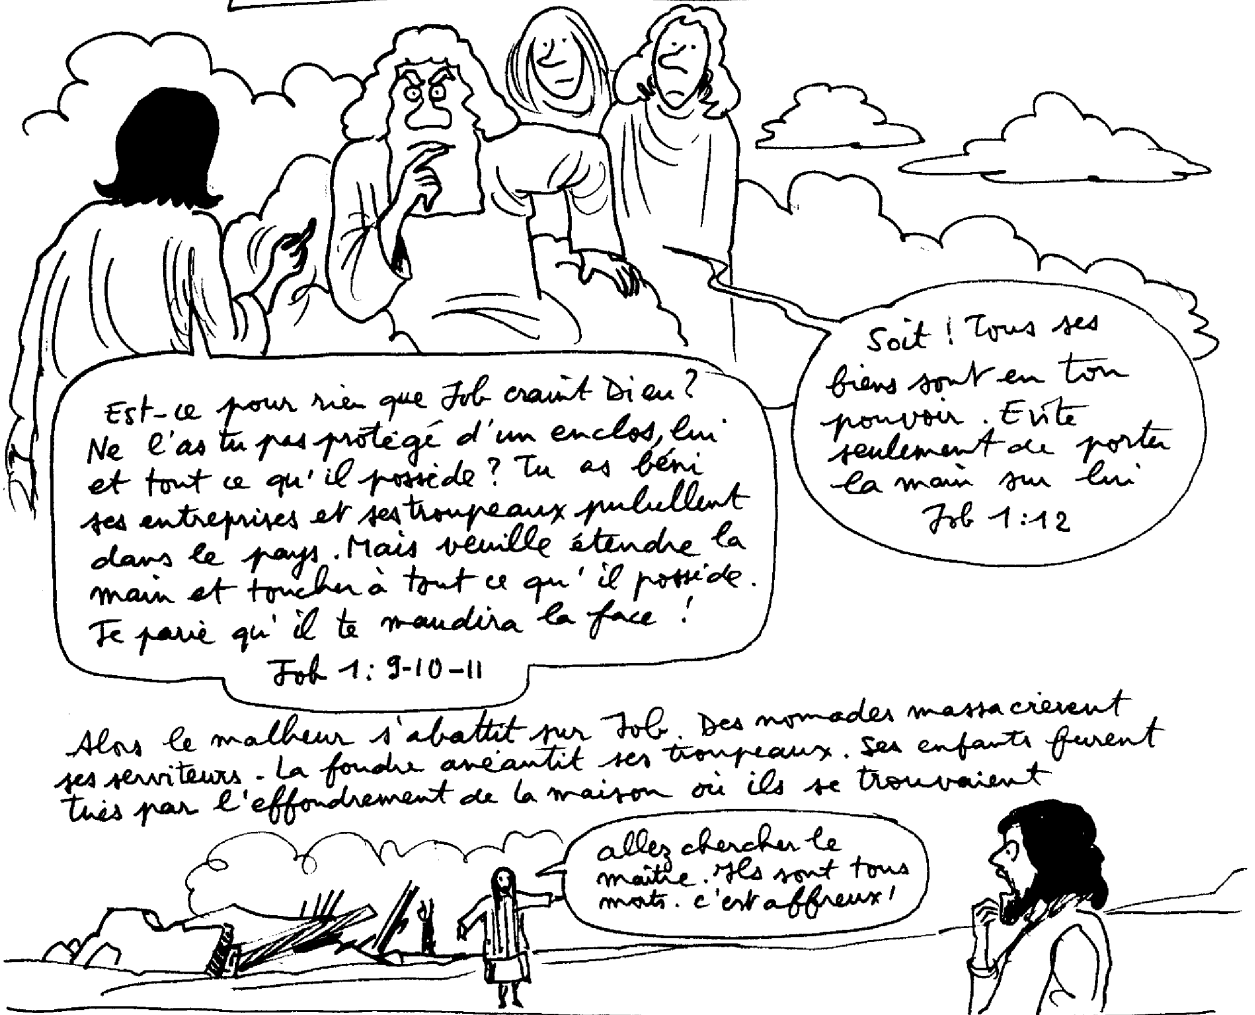 Est-ce pour rien que Job craint Dieu?
Ne l'as tu pas protégé d'un enclos, lui
et tout ce qu'il possède? Tu as béni
ses entreprises et ses troupeaux pulullent
dans le pays. Mais veuille étendre la
main et toucher à tout ce qu'il possède.
Je parie qu'il te maudira la face!
Job 1: 9-10-11
Soit! Tous ses
biens sont en ton
pouvoir. Evite
seulement de porter
la main sur lui
Job 1:12
Alors le malheur s'abattit sur Job. Des nomades massacrèrent
ses serviteurs. La foudre anéantit ses troupeaux. Ses enfants furent
tués par l'effondrement de la maison où ils se trouvaient
allez chercher le
maître. Ils sont tous
morts. c'est affreux!